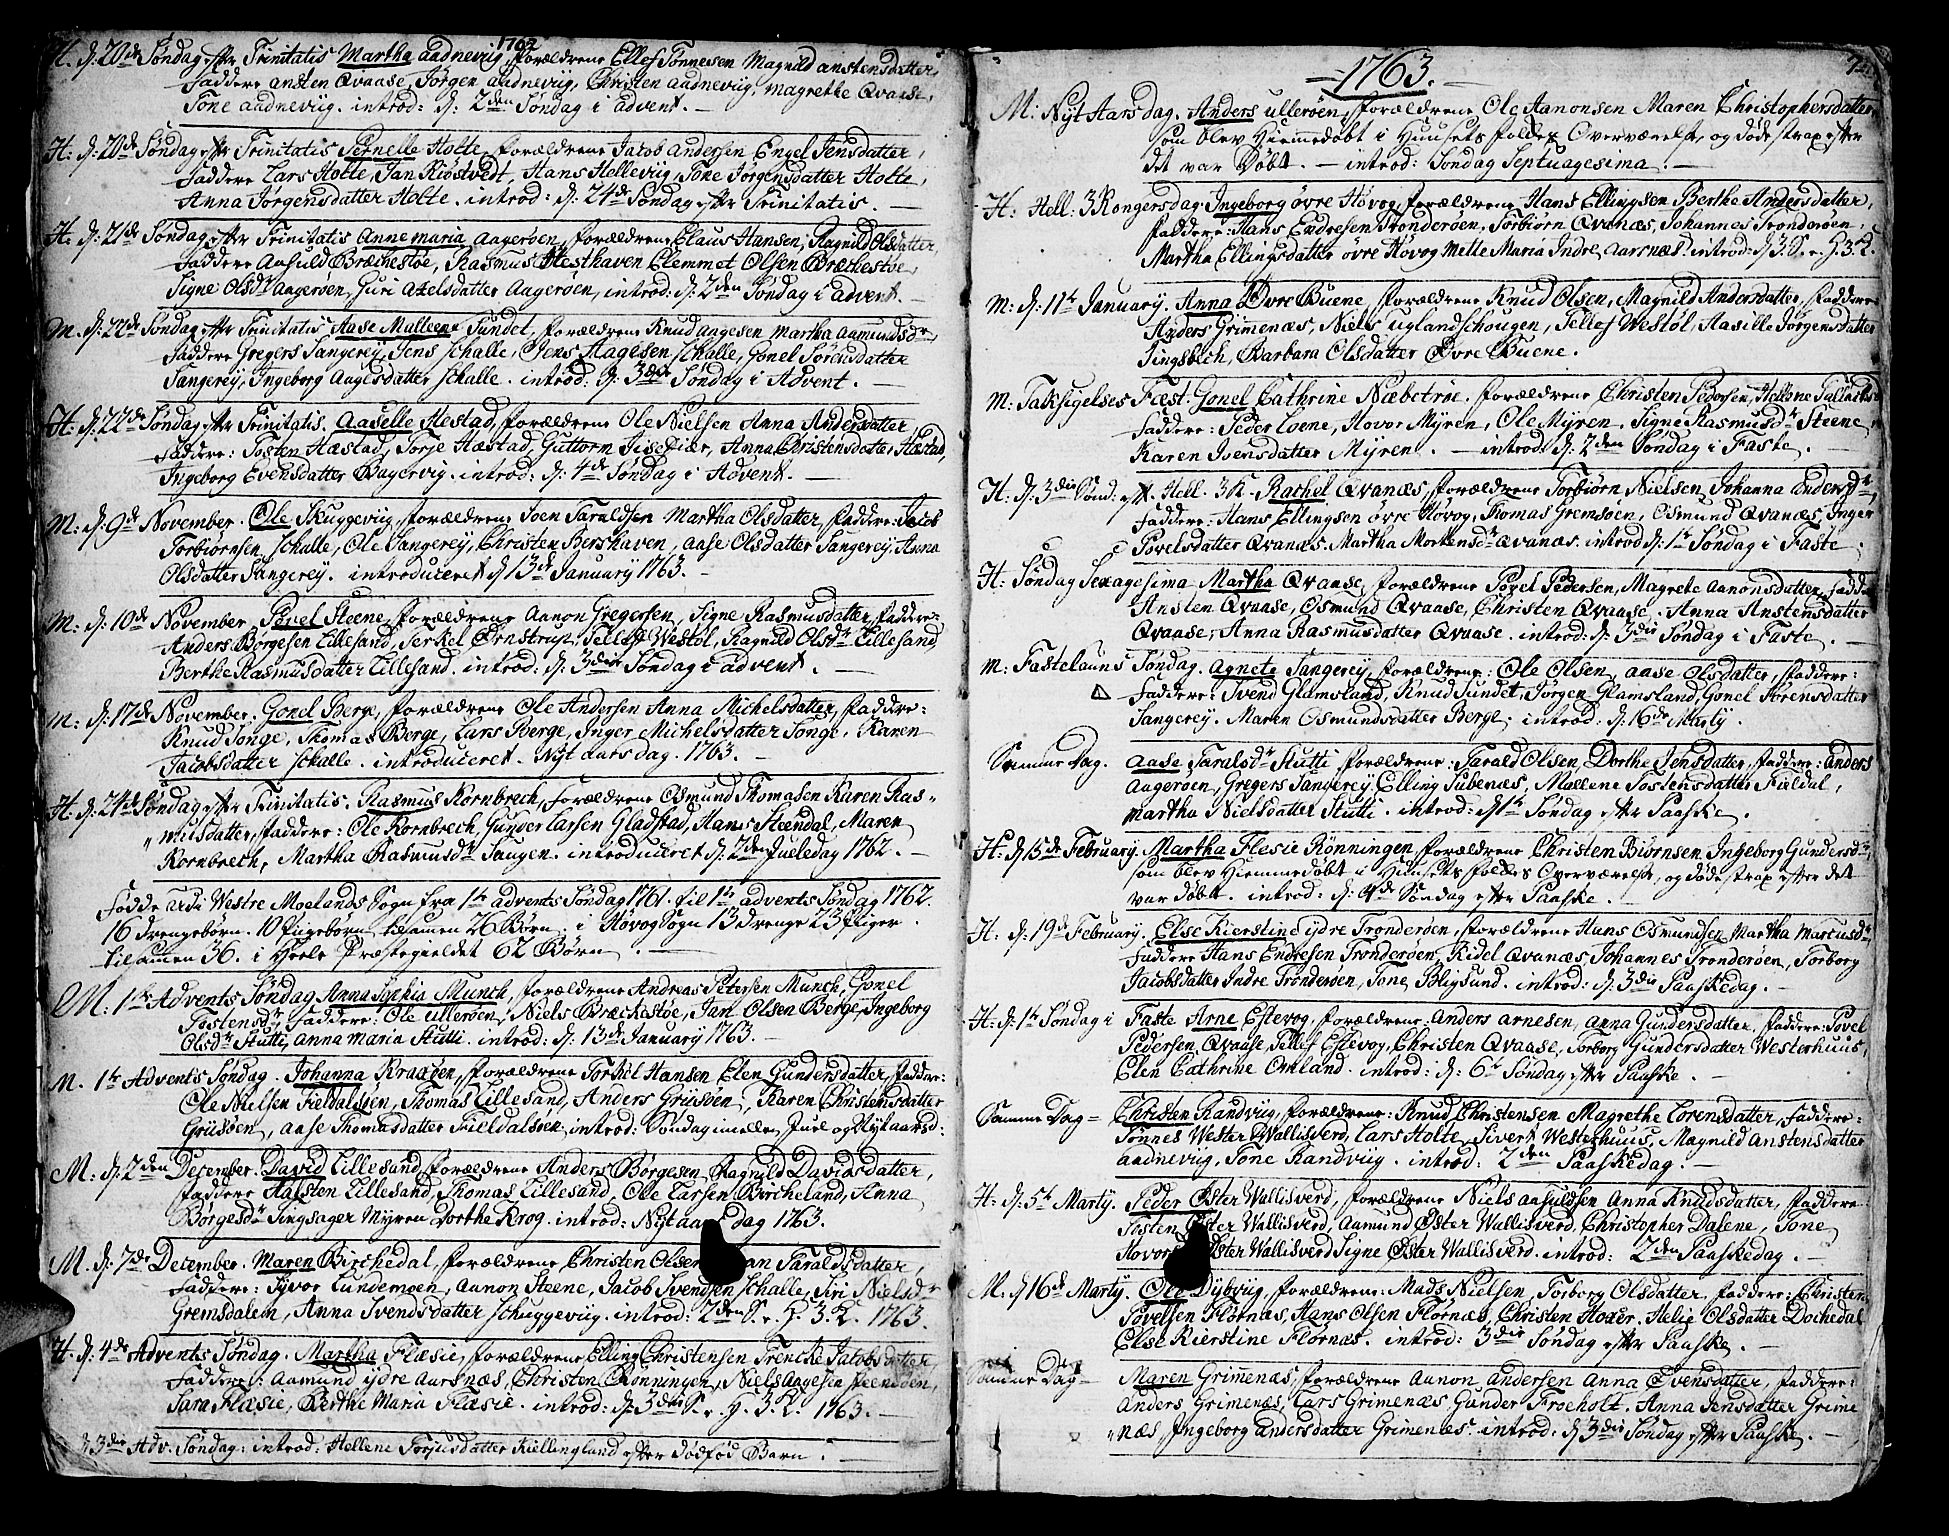 1762
H. d: 20de Søndag efter Trinitatis Martha Aadneviig, forældrene Ellef Tønnesen Magnild Anstensdatter,
Faddere Ansten Qvaase, Jørgen Aadneviig, Christen Aadneviig, Magrethe Qvaase,
Tone Aadneviig. introd: d: 2den Søndag i Advent. —
H: d: 20de Søndag efter Trinitatis Pernelle Holte, forældrene Jacob Andersen Engel Jensdatter,
Faddere Lars Holte, Jan Kiøstvedt, Hans Helleviig, Tone Jørgensdatter Holte,
Anna Jørgensdatter Holte. introd: d: 24de Søndag efter Trinitatis. —
H. d: 21de Søndag efter Trinitatis Annemaria Aagerøen, forældrene Claus Hansen, Ragnild Olsdatter
Faddere Aasuld Brækestøe, Rasmus Hesthaven Clemmet Olsen Brækestøe,
Signe Olsdr Aagerøen, Guri Axelsdatter Aagerøen, introd: d: 2den Søndag i Advent. —
M. d: 22de Søndag efter Trinitatis Aase Malleene Sundet, forældrene Knud Aagesen Martha Aamundsdr,
Faddere Gregers Sangereÿ, Jens Schalle, Jens Aagesen Schalle, Gonel Sørensdatter
Sangereÿ, Ingeborg Aagesdatter Schalle. introd: d: 3die Søndag i Advent. —
H. d: 22de Søndag efter Trinitatis. Aaselle Hestad, forældrene Ole Nielsen Anna Andersdatter,
Faddere: Tosten Hæstad, Torje Hæstad, Guttorm Tisefiær, Anna Christensdatter Hæstad,
Ingeborg Evensdatter Bagervig. introd: d: 4de Søndag i Advent. —
M: d: 9de November. Ole Skuggeviig, forældrene Joen Taraldsen Martha Olsdatter, Faddere: Jacob
Torbiørnsen Schalle, Ole Sangereÿ, Christen Bershaven, Aase Olsdatter Sangereÿ, Anna
Olsdatter Sangereÿ. introduceret d 13de January 1763. —
M: d: 10de November. Povel Steene, forældrene Aanon Gregersen, Signe Rasmusdatter, Faddere:
Anders Børgesen Lillesand, Terkel Ørnstrup, Tellef Westøl, Ragnild Olsdr Lillesand,
Berthe Rasmusdatter Lillesand. introd: d: 3die Søndag i Advent. —
M: d: 17de November. Gonel Berge, forældrene Ole Andersen Anna Michelsdatter, Faddere:
Knud Songe, Thomas Berge, Lars Berge, Inger Michelsdatter Songe, Karen
Jacobsdatter Schalle. introduceret. Nyt aarsdag. 1763. —
H. d: 24de Søndag efter Trinitatis. Rasmus Kornbrech, Forældrene Osmund Thomasen Karen Ras-
„musdatter, Faddere: Ole Kornbrech, Gunver Larsen Gladstad, Hans Steendal, Maren
Kornbrech, Martha Rasmusdr Saugen. introduceret d: 2den Jueledag 1762. —
Fødde udi Westre Moelands Sogn fra 1te advents Søndag 1761 til 1te advents Søndag 1762.
16 Drengebørn. 10 Pigebørn, tilsamen 26 Børn. i Høvog Sogn 13 Drenge 23 Piger.
tilsamen 36. i Heele Præstegieldet 62 Børn. —
M: 1te Advents Søndag Anna Sophia Munch, forældrene Andreas Petersen Munch, Gonel
Tostensdr, Faddere: Ole Ullerøen, Niels Brækestøe, Jan Olsen Berge, Ingeborg
Olsdr Stutti, Anna Maria Stutti. introd: d: 13de January 1763. —
M. 1te Advents Søndag. Johanna Kraagen, forældrene Torkel Hansen Elen Gundersdatter, Faddere:
Ole Nielsen Fieldalsøen, Thomas Lillesand, Anders Griisøen, Karen Christensdatter
Griisøen, Aase Thomasdatter Fieldalsøen introd: Søndag imellem Juel og Nytaarsd:
M: d: 2den December. David Lillesand, forældrene Anders Børgesen, Ragnild Davidsdatter,
Faddere Halsten Lillesand, Thomas Lillesand, Ole Larsen Bircheland, Anna
Børgesdr Singsager Myren Dorthe Krog. introd: Nyt aarsdag 1763.
M. d: 7de December. Maren Birchedal, forældrene Christen Olsen Taraldsdatter,
Faddere: Syvor Lundemoen, Aanon Steene, Jacob Svendsen Schalle, Siri Nielsdr
Gremsdalen, Anna Svendsdatter Schuggeviig. introd: 2den S. e. H. 3 K. 1763.
H. d: 4de Advents Søndag. Martha Flæsie, forældrene Elling Christensen Trencke Jacobsdatter,
Faddere: Aamund Ydre Aarsnæs, Christen Rønningen, Niels Aagesen Steendøen,
Sara Flæsie, Berthe Maria Flæsie. introd: d: 3die S. e. H. 3. K. 1763. —
d 3die Adv: Søndag: introd: Hellene Torjusdatter Killingland efter Dødfød Barn. —
1763.
M: Nyt Aarsdag. Anders Ullerøen, forældrene Ole Aanonsen Maren Christophersdatter
Som blev Hiemmedøbt i Huusets Folckes Overværelse, og døde strax efter
det var døbt. — introd: Søndag Septuagesima. —
H: Hell: 3 Kongersdag. Ingeborg øvre Høvog, forældrene Hans Ellingsen Berthe Andersdatter,
Faddere: Hans Endresen Trønderøen, Torbiørn Qvanæs, Johannes Trønderøen,
Martha Ellingsdatter øvre Høvog Mette Maria Indre Aarsnæs. introd: d 3. S. e. H. 3. K.
M: d: 11te January. Anna Øvre Buene, forældrene Knud Olsen, Magnild Andersdatter, Faddere
Anders Grimenæs, Niels Uglandschougen, Tellef Westøl, Aasille Jørgensdatter
Singsbech, Barbara Olsdatter Øvre Buene.
M: Taksigelses Fæst. Gonel Cathrine Næbstøe. forældrene Christen Pedersen, Hellene
Faddere: Peder Loene, Hovor Myren, Ole Myren, Signe Rasmusdr Steene,
Karen Ivensdatter Myren. — introd: d: 2den Søndag i Faste. —
H. d: 3die Sønd: eft. Hell. 3 K. Rachel Qvanæs, forældrene Torbiørn Nielsen, Johanna Andersdr,
Faddere: Hans Ellingsen øvre Høvog, Thomas Gremsøen, Osmund Qvanæs, Inger
Povelsdatter Qvanæs. Martha Mortensdr Qvanæs. introd d: 1te Søndag i Faste.
H: Søndag Sexagesima Martha Qvaase, forældrene Povel Pedersen, Magrete Aanonsdatter, Fadd:
Ansten Qvaase, Osmund Qvaase, Christen Qvaase. Anna Anstensdatter
Qvaase, Anna Rasmusdatter Qvaase. introd: d: 3die Søndag i Faste. —
M: Fastelauns Søndag. Agnete Sangereÿ, forældrene: Ole Olsen, Aase Olsdatter, Faddere:
Faddere: Svend Glamsland, Knud Sundet, Jørgen Glamsland, Gonel Sørensdatter
Sangereÿ. Maren Osmundsdatter Berge. introd: d: 16de Martÿ.
Samme Dag. Aase Taralsdr Stutti forældrene: Tarald Olsen, Dorthe Jensdatter, Faddere: Anders
Aagerøen, Gregers Sangereÿ Elling Tubenæs, Mallene Tostensdatter Fieldal,
Martha Nielsdatter Stutti. introd: d 1te Søndag efter Paaske. —
H: d 15de February. Martha Flesie Rønningen, forældrene Christen Biørnsen, Ingeborg Gundersdr,
som blev Hiemmedøbt i Huusets Folckes Overværelse, og døde strax efter det
var døbt. introd: d: 4de Søndag efter Paaske. —
H: d: 19de February. Else Kierstine Ydre Trønderøen, forældrene Hans Osmundsen Martha Marcusdr,
Faddere Hans Endresen Trønderøen, Kidel Qvanæs Johannes Trønderøen, Torborg
Jacobsdatter Indre Trønderøen, Tone Bliksund. introd: d: 3die Paaskedag. —
H: d: 1te Søndag i Faste Arne Estevog, forældrene Anders Arnesen, Anna Gundersdatter, Faddere: Povel
Pedersen Qvaase, Tellef Estevog, Christen Qvaase, Torborg Gundersdatter Westerhuus,
Elen Cathrine Omland. introd: d: 6te Søndag efter Paaske. —
Samme Dag — Christen Randviig, forældrene: Knud Christensen Magrethe Lorensdatter, Faddere:
Tønnes Wester Wallisverd, Lars Holte, Sivert Westerhuus, Magnild Anstensdatter
Aadneviig, Tone Randviig. introd: 2den Paaskedag. —
H: d: 5te Martÿ. Peder Øster Wallisverd, forældrene Niels Aasuldsen Anna Knudsdatter, Faddere:
Tosten Øster Wallisverd, Aamund Øster Wallisverd, Christopher Dalene, Tone
Hovors Øster Wallisverd Signe Øster Wallisverd. introd: 2den Paaskedag. —
M: d 16de Martÿ. Ole Dybviig, forældrene: Mads Nielsen, Torborg Olsdatter, Faddere: Christen
Povelsen Flørnæs, Hans Olsen Flørnæs, Christen Hoxer, Helje Olsdatter Dockedal
Else Kierstine Flørnæs. introd: 3die Søndag efter Paaske. —
Samme Dag — Maren Grimenæs, forældrene Aanon Andersen Anna Evensdatter, Faddere:
Anders Grimenæs, Lars Grimenæs Gunder Froeholt. Anna Jensdatter Grime
„næs, Ingeborg Andersdatter Grimenæs. introd: d 3die Søndag efter Paaske. —